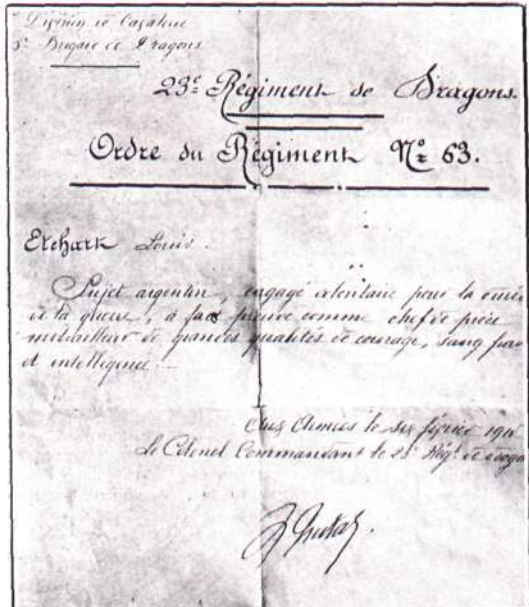 Division de Cavalerie
5e Brigade de Dragons
23e Régiment de Dragons.
Ordre du Régiment No 63.
Etchart Louis.
Sujet argentin, engagé volontaire pour la durée
de la guerre, à fait preuve comme chef de pièce
mitrailleur de grandes qualités de courage, sang froid
et intelligence.
Aux Armées le six février
Le Colonel Commandant le 23e Régt de drago